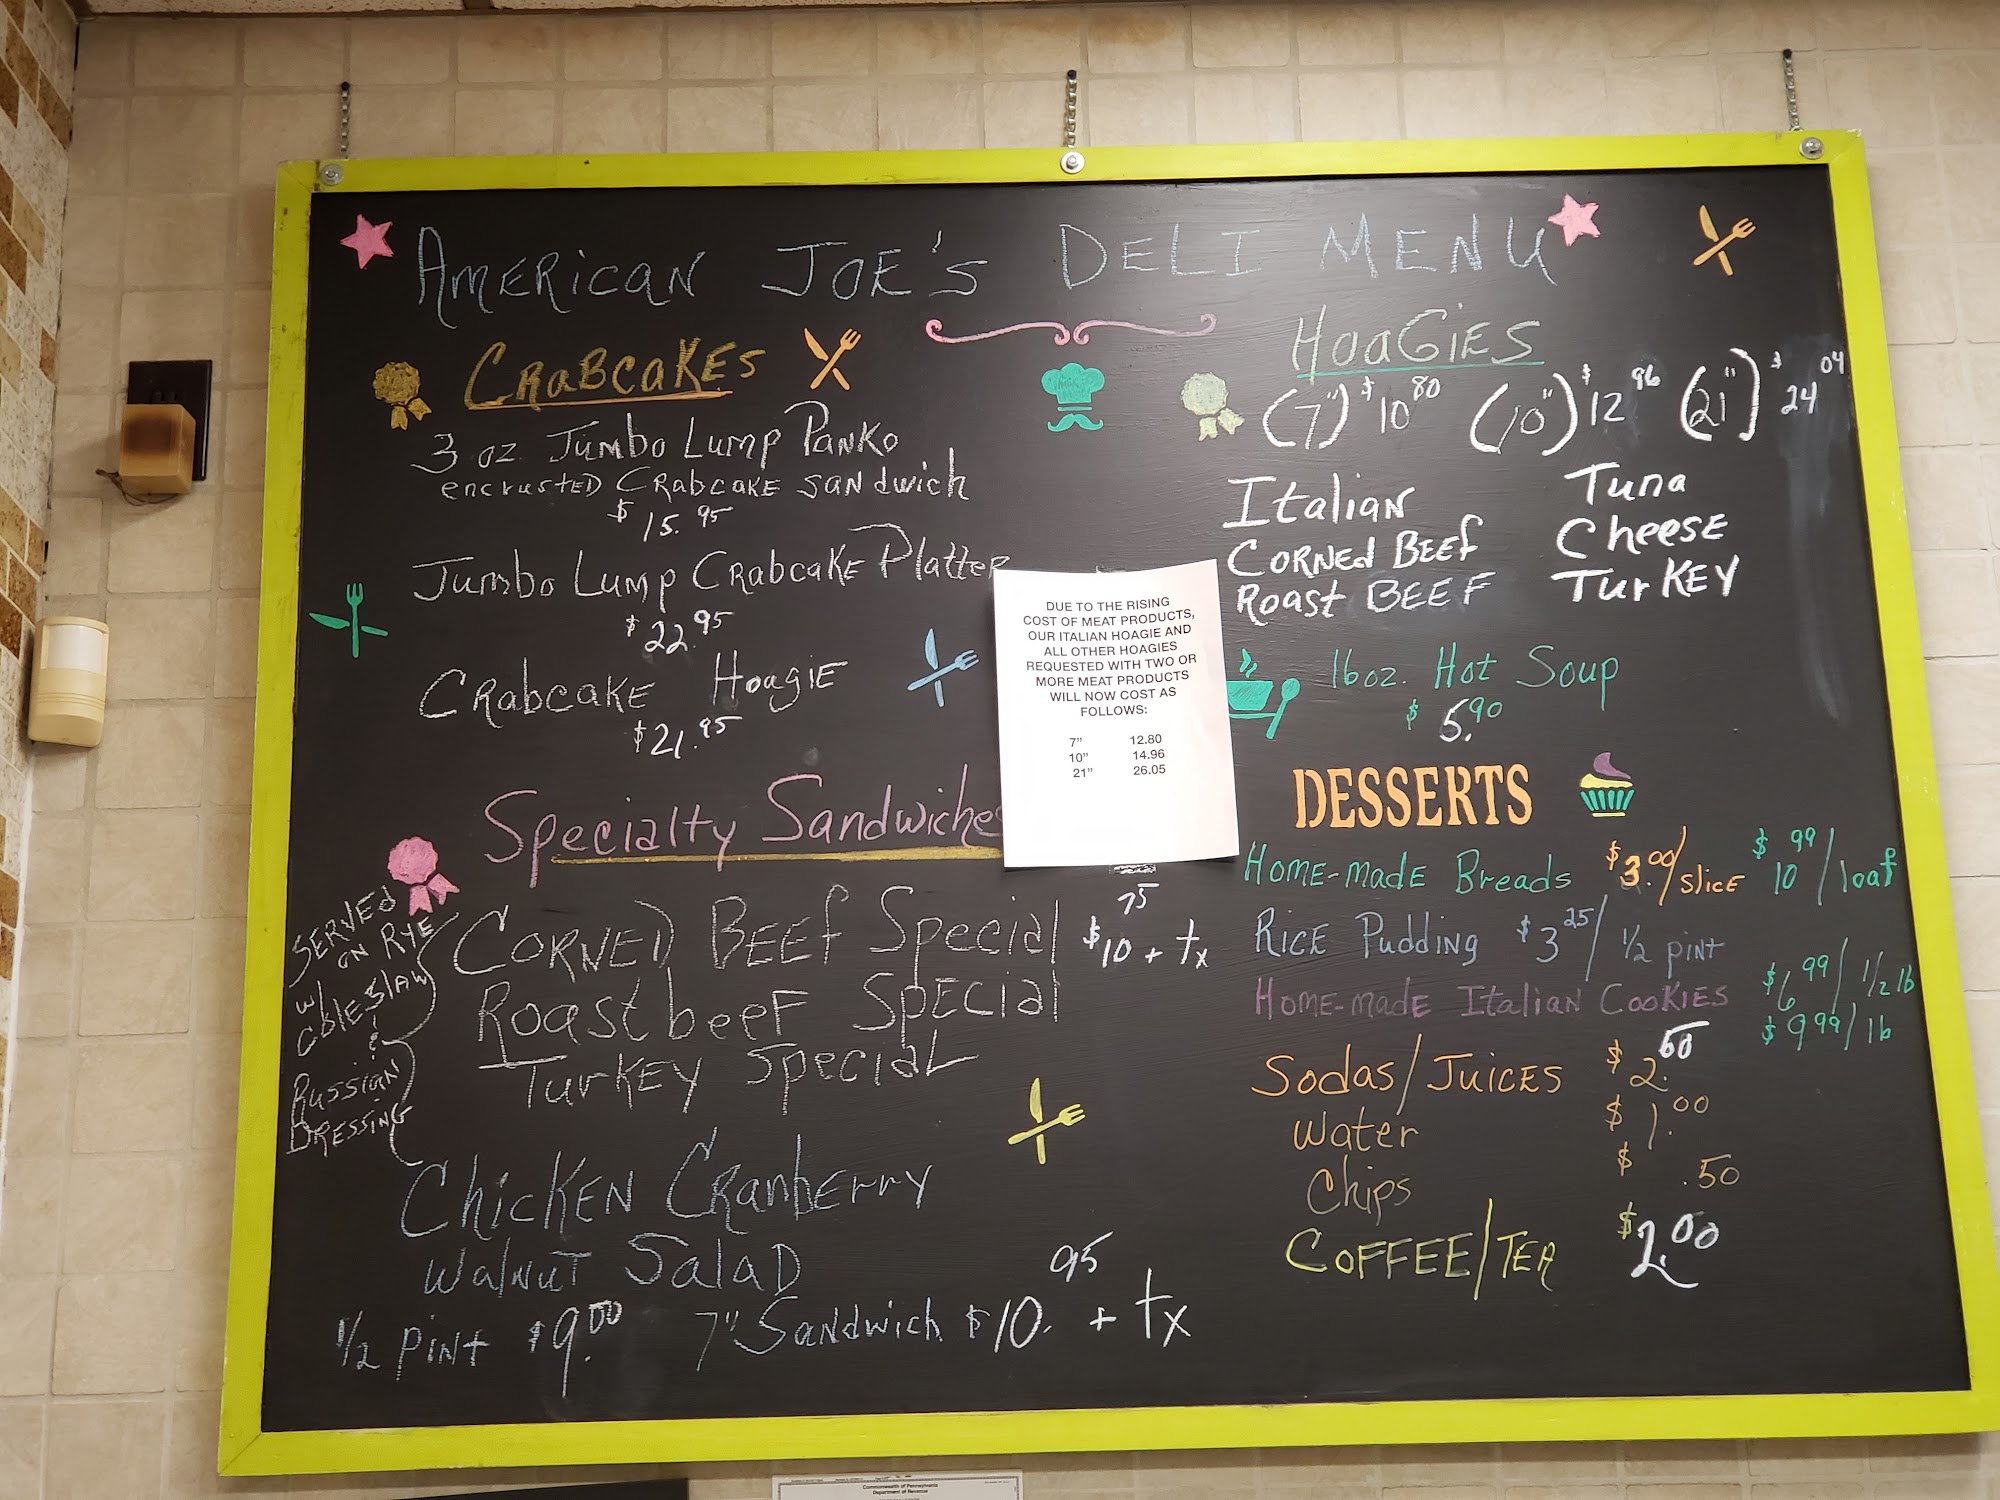 AMERICAN JOE'S DELI MENU
CRABCAKES
3 oz Jumbo Lump Panko
encrusted Crabcake sandwich
$15.95
Jumbo Lump Crabcake Platter
$22.95
Crabcake Hoagie
$21.95
Specialty Sandwiches
SERVED
ON RYE
w/
coleslaw
&
Russian
Dressing
CORNED BEEF Special $10.75 + tx
Roast beef Special
Turkey Special
Chicken Cranberry
Walnut Salad
1/2 pint $9.00 7" Sandwich $10.95 + tx
DUE TO THE RISING
COST OF MEAT PRODUCTS,
OUR ITALIAN HOAGIE AND
ALL OTHER HOAGIES
REQUESTED WITH TWO OR
MORE MEAT PRODUCTS
WILL NOW COST AS
FOLLOWS:
7" 12.80
10" 14.96
21" 26.05
HOAGIES
(7") $10.80 (10") $12.96 (21") $24.04
Italian Tuna
Corned Beef Cheese
Roast BEEF Turkey
16 oz. Hot Soup
$5.90
DESSERTS
Home-made Breads $3.00/slice $10.99/loaf
Rice Pudding $3.25/ 1/2 pint
Home-made Italian Cookies $6.99/ 1/2 lb
$9.99/lb
Sodas/Juices $2.60
Water $1.00
Chips $ .50
COFFEE/TEA $2.00
Commonwealth of Pennsylvania
Department of Revenue